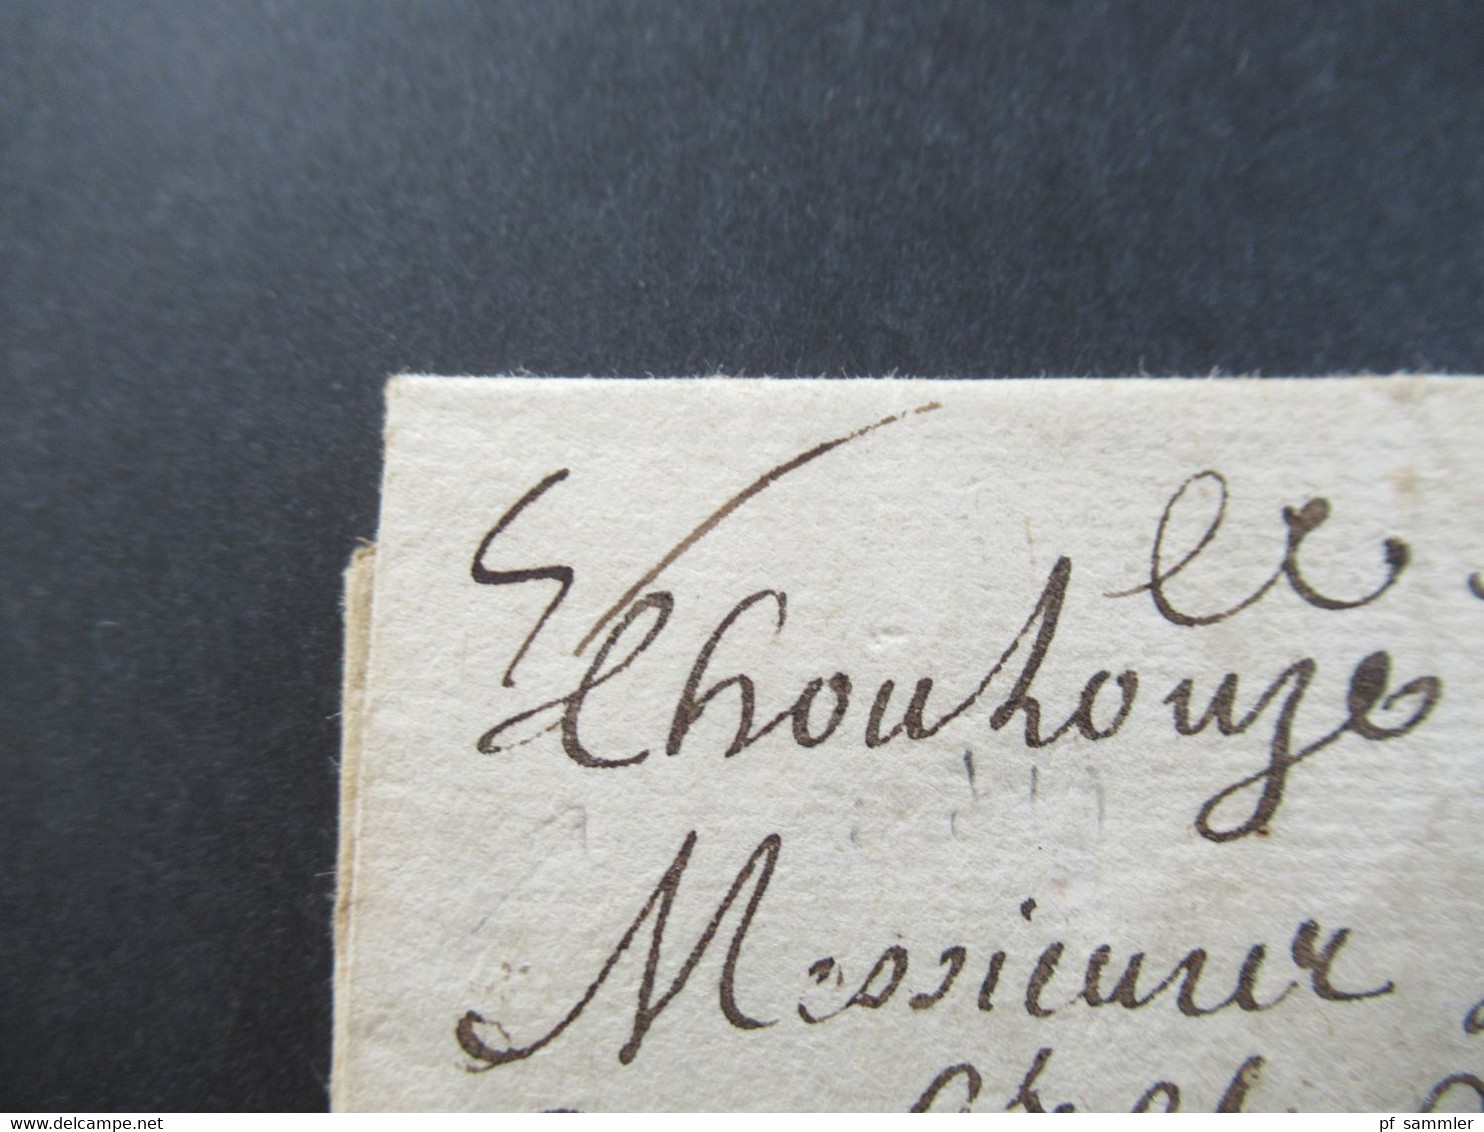 le
Thoulouze
Messieurs
www.delcampe.net
pf_sammler